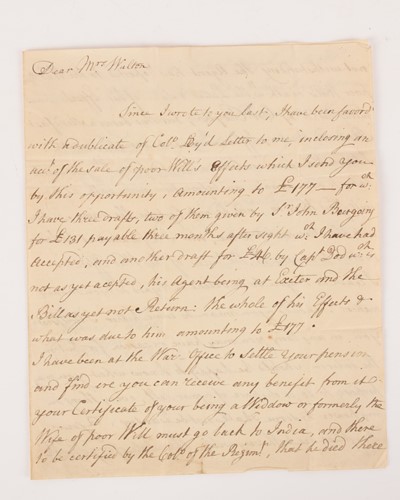 Dear Mrs. Walton
Since I wrote to you last, I have been favord
with a dublicate of Colo. By'd Letter to me, inclosing an
acct. of the sale of poor Will's Effects which I send you
by this opportunity, amounting to £177 — for wch.
I have three draft, two of them given by Sr. John Bourgoin
for £131 payable three months after sight wch. I have had
accepted, and another draft for £46 by Capt. Dod wch. is
not as yet acepted, his Agent being at Exeter and the
Bill as yet not Return: the whole of his Effects &
what was due to him amounting to £177.
I have been at the War Office to Settle your pension
and find ere you can receive any benefit from it
your Certificate of your being a Weddow or formerly the
Wife of poor Will must go back to India, and there
to be certified by the Colo. of the Regimt., that he died there